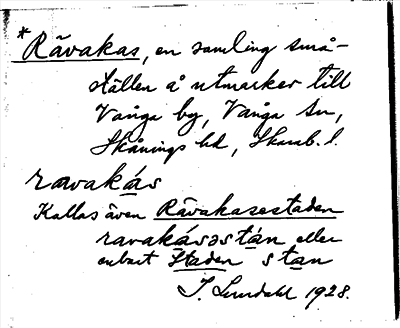 * Rävakas, en samling små-
ställen å utmarker till
Vånga by, Vånga sn,
Skånings hd, Skarab. l.
ravakás
Kallas även Rävakasestaden
ravakásəstán eller
enbart Staden stan
J. Lundahl 1928.